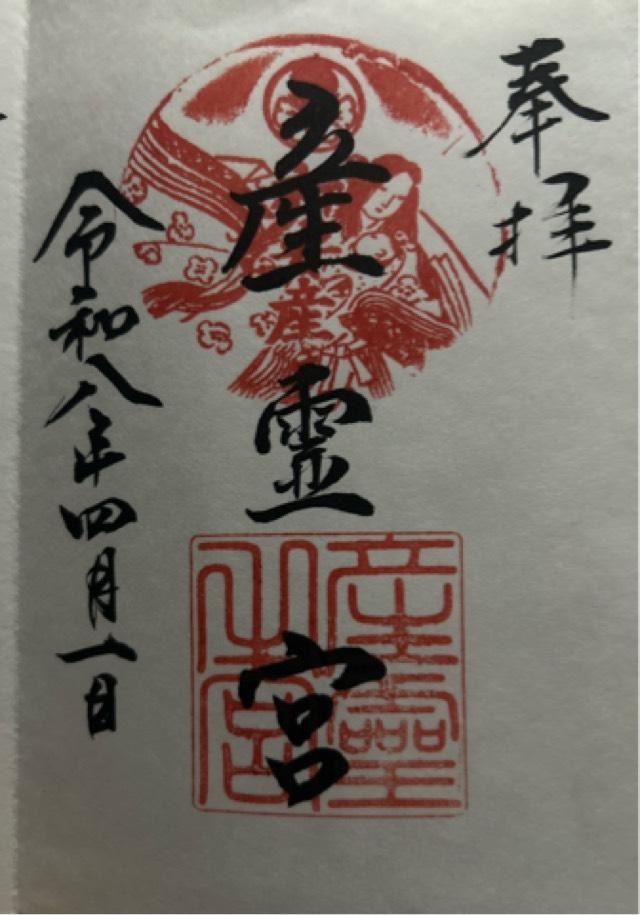 奉拝
産霊宮
産霊
之宮
産
令和八年四月一日